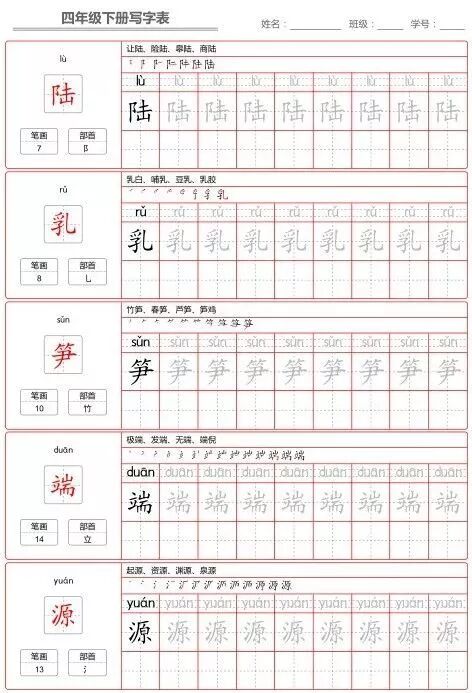 四年级下册写字表 姓名： 班级： 学号：
lù
陆
笔画 部首
7 阝
让陆、险陆、皋陆、商陆
lù lù lù lù lù lù lù lù lù
陆 陆 陆 陆 陆 陆 陆 陆 陆
rǔ
乳
笔画 部首
8 乚
乳白、哺乳、豆乳、乳胶
rǔ rǔ rǔ rǔ rǔ rǔ rǔ rǔ rǔ
乳 乳 乳 乳 乳 乳 乳 乳 乳
sǔn
笋
笔画 部首
10 竹
竹笋、春笋、芦笋、笋鸡
sǔn sǔn sǔn sǔn sǔn sǔn sǔn sǔn sǔn
笋 笋 笋 笋 笋 笋 笋 笋 笋
duān
端
笔画 部首
14 立
极端、发端、无端、端倪
duān duān duān duān duān duān duān duān duān
端 端 端 端 端 端 端 端 端
yuán
源
笔画 部首
13 氵
起源、资源、渊源、泉源
yuán yuán yuán yuán yuán yuán yuán yuán yuán
源 源 源 源 源 源 源 源 源